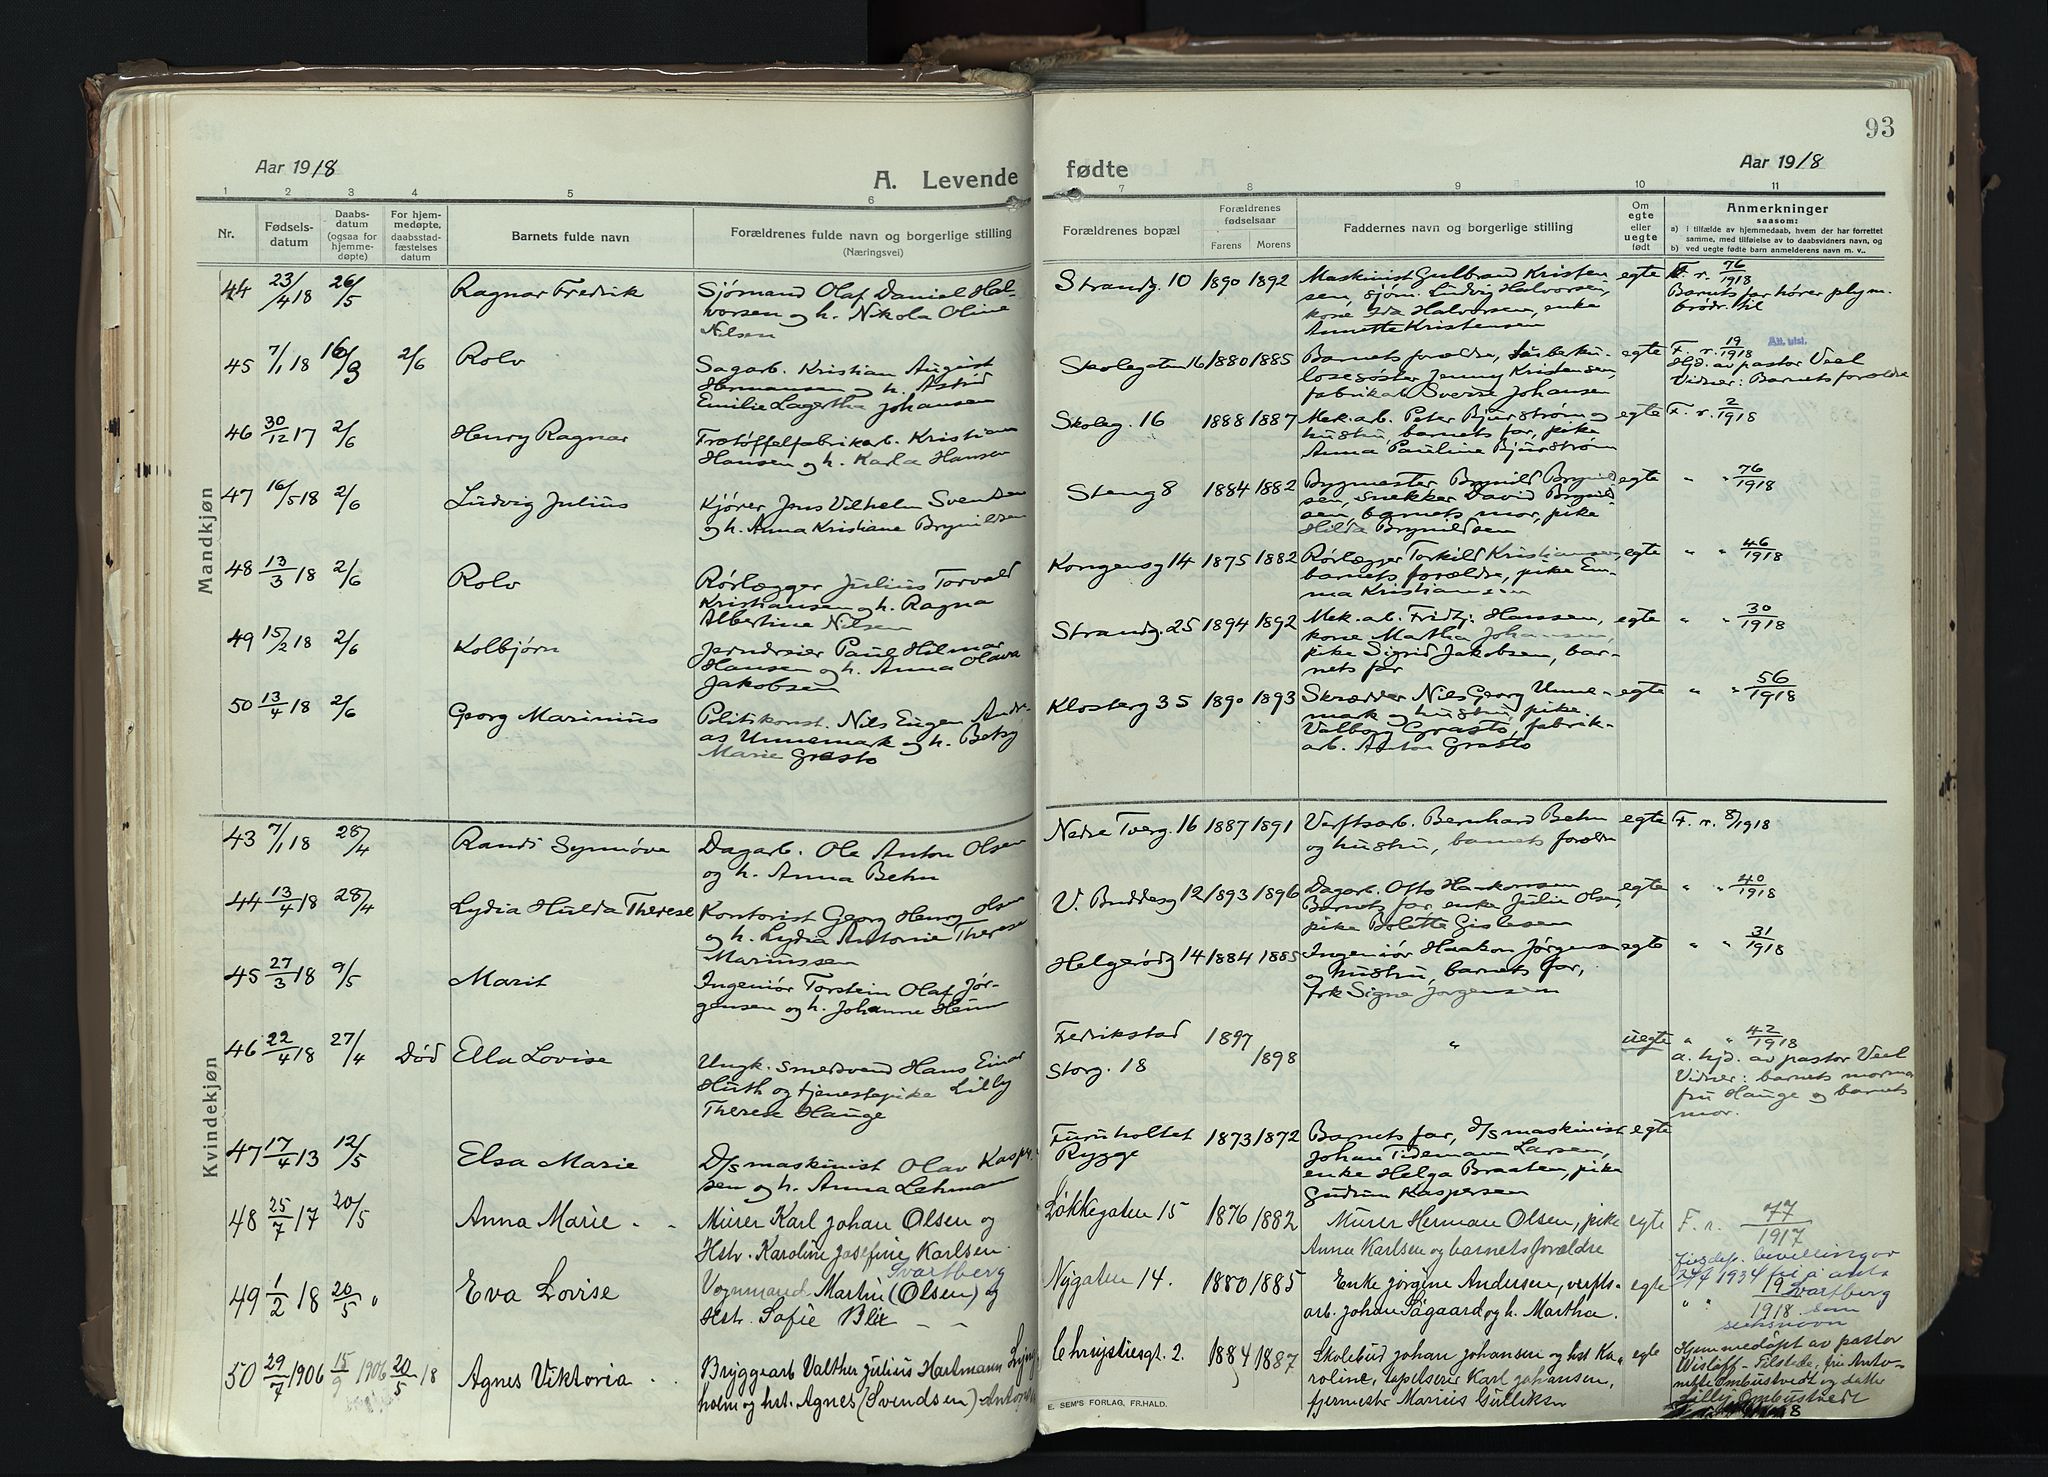 Aar 1918
A. Levende
1 2 3 4 5 6
Nr.
Fødsels-
datum
Daabs-
datum
(ogsaa for
hjemme-
døpte)
For hjem-
medøpte,
daabsstad-
fæstelses
datum
Barnets fulde navn
Forældrenes fulde navn og borgerlige stilling
(Næringsvei)
Mandkjøn
44 23/4 18 26/5 Ragnar Fredrik
Sjömand Olaf Daniel Hal-
vorsen og h. Nikola Oline
Nilsen
45 7/1 18 16/3 2/6 Rolv
Sagarb. Kristian August
Hermansen og h. Astrid
Emilie Lagertha Johansen
46 30/12 17 2/6 Henry Ragnar
Trætøffelfabrikarb. Kristian
Hansen og h. Karla Hansen
47 16/5 18 2/6 Ludvig Julius
Kjører Jens Vilhelm Svendsen
og h. Anna Kristiane Brynildsen
48 13/3 18 2/6 Rolv
Rörlægger Julius Torvald
Kristiansen og h. Ragna
Albertine Nilsen
49 15/2 18 2/6 Kolbjørn
Jerndreier Paul Hilmar
Hansen og h. Anna Olava
Jakobsen
50 13/4 18 2/6 Georg Marinius
Politikonst. Nils Eugen Andre-
as Unnemark og h. Betsy
Marie Græsto
Kvindekjøn
43 7/1 18 28/4 Randi Synnøve
Dagarb. Ole Anton Olsen
og h. Anna Behn
44 13/4 18 28/4 Lydia Hulda Therese
Kontorist Georg Henry Olsen
og h. Lydia Antonie Therese
Marinussen
45 27/3 18 9/5 Marit
Ingeniör Torstein Olaf Jör-
gensen og h. Johanne Heum
46 22/4 18 27/4 Død Ella Lovise
Ungk. smedsvend Hans Einar
Huth og tjenestepike Lilly
Therese Hauge
47 17/4 13 12/5 Elsa Marie
D/s maskinist Olav Kasper-
sen og h. Anna Lehman
48 25/7 17 20/5 Anna Marie
Murer Karl Johan Olsen og
Hstr. Karoline Josefine Karlsen
Svartberg
49 1/2 18 20/5 Eva Lovise
Vognmand Martin (Olsen) og
Hstr. Sofie Blix
50 29/7 1906 15/9 1906 20/5 18 Agnes Viktoria
Bryggearb Valther Julius Hartmann Lyng
holm og hst. Agnes (Svendsen)
93
fødte
Aar 1918
7 8 9 10 11
Forældrenes bopæl
Forældrenes
fødselsaar
Farens Morens
Faddernes navn og borgerlige stilling
Om
egte
eller
uegte
født
Anmerkninger
saasom:
a) i tilfælde av hjemmedaab, hvem der har forrettet
samme, med tilføielse av to daabsvidners navn, og
b) ved uegte fødte barn anmelderens navn m. v..
Strandg. 10 1890 1892
Maskinist Gulbrand Kristen
sen, sjöm. Ludvig Halvorsen,
kone Ida Halvorsen, enke
Annette Kristensen
egte F. r. 76/1918
Barnets far hører plym.
brødr. til
Skolegaten 16 1880 1885
Barnets forældre, tuberku-
losesöster Jenny Kristensen,
fabrikarb. Sverre Johansen
egte F. r. 19/1918
Att. utst.
Hjd. av pastor Veel
Vidner: Barnets forældre
Skoleg. 16 1888 1887
Mek. arb. Peter Bjurström og
hustru, barnets far, pike
Anna Pauline Bjurström
egte F. r. 2/1918
Steng 8 1884 1882
Bygmester Brynild Brynild
sen, snekker David Brynild
sen, barnets mor, pike
Hilda Brynildsen
egte " " 76/1918
Kongensg 14 1875 1882
Rörlægger Torkild Kristiansen,
barnets forældre, pike Em-
ma Kristiansen
egte " " 46/1918
Strandg. 25 1894 1892
Mek. ab. Fridtj. Hanssen,
kone Martha Johansen,
pike Sigrid Jakobsen, bar-
nets far
egte " " 30/1918
Klosterg 35 1890 1893
Skrædder Nils Georg Unne-
mark og hustru, pike
Valborg Græsto, fabrik-
arb. Anton Græsto
egte " " 56/1918
Nedre Tverg. 16 1887 1891
Verftsarb. Bernhard Behn
og hustru, barnets foreldre
egte F. r. 8/1918
V. Buddesg 12 1893 1896
Dagarb. Otto Haakonsen
Barnets far, enke Julie Olsen,
pike Bolette Gislesen
egte " " 40/1918
Helgerödg 14 1884 1885
Ingeniør Haakon Jørgensen
og hustru, barnets far,
frk Signe Jørgensen
egte " " 31/1918
Fredrikstad 1897
Storg. 18 1898
"
uegte " " 42/1918
a. hjd. av pastor Veel
Vidner: barnets mormor
fru Hauge og barnets
mor.
Furuholtet 1873 1872
Rygge
Barnets far, D/s maskinist
Johan Tidemann Larsen,
enke Helga Braaten, pike
Gudrun Kaspersen
egte
Løkkegaten 15 1876 1882
Murer Herman Olsen, pike
Anna Karlsen og barnets forældre
egte F. r. 77/1917
Nygaten 14. 1880 1885
Enke Jörgine Andersen, verfts-
arb. Johan Aagaard og h. Martha.
egte " " 19/1918
Jusdep. bevilling av
1934 for å anta
Svartberg
som
slektsnavn
Chrystiesgt. 2. 1884 1887
Skolebud Johan Johansen og hst Ka-
roline, tapetserer Karl Johansen,
fjermester Marius Gulliksen
egte
Hjemmedøpt av pastor
Wisløff - Tilstede, fru Anto-
nette Ombustvedt og datter
Lilly Ombustvedt
E. SEM'S FORLAG, FR.HALD.